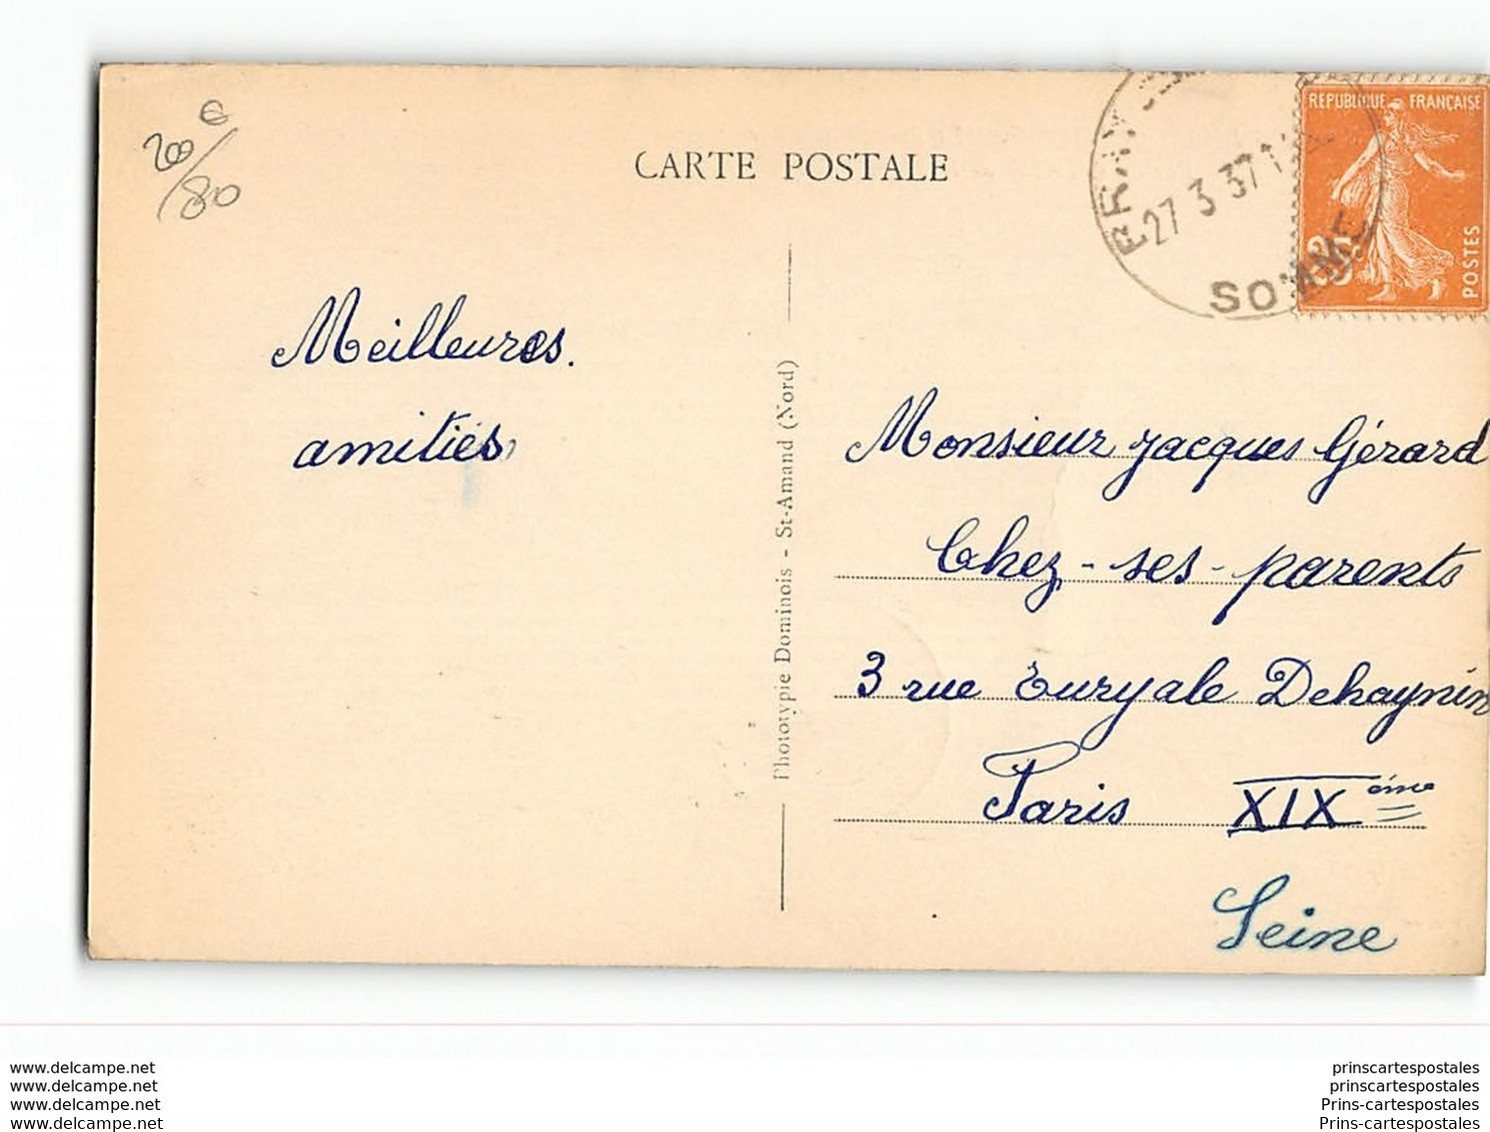 200 €
/80
CARTE POSTALE
REPUBLIQUE FRANÇAISE
POSTES
27 3 37
SOMME
Meilleures.
amitiés
Phototypie Dominois - St-Amand (Nord)
Monsieur Jacques Gérard
Chez-ses-parents
3 rue Euryale Dehaynin
Paris XIX ème
Seine
www.delcampe.net
www.delcampe.net
www.delcampe.net
www.delcampe.net
prinscartespostales
prinscartespostales
Prins-cartespostales
Prins-cartespostales